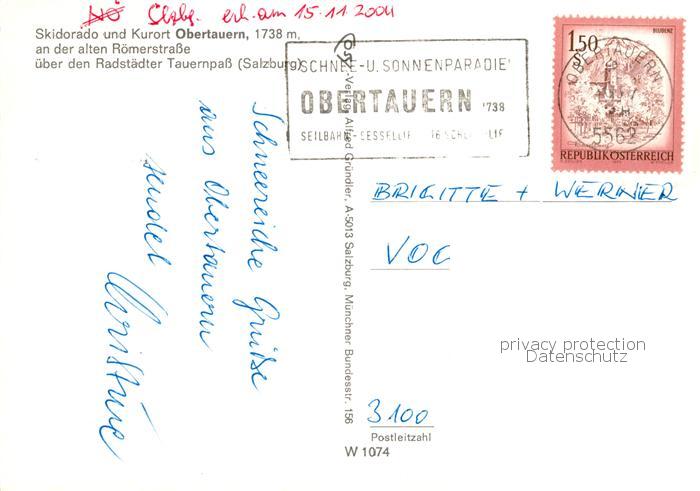 NÖ Chzbg. erh. am 15.11.2004
Skidorado und Kurort Obertauern, 1738 m,
an der alten Römerstraße
über den Radstädter Tauernpaß (Salzburg)
Schneereiche Grüße
aus Obertauern
sendet Christine
Verlag Alfred Gründler, A-5013 Salzburg, Münchner Bundesstr. 156
SCHNEE-U. SONNENPARADIE
OBERTAUERN 1738
SEILBAHN-SESSELLIF
BLUDENZ
1.50
S
OBERTAUERN
5562
REPUBLIK ÖSTERREICH
BRIGITTE + WERNER
VOC
privacy protection
Datenschutz
3100
Postleitzahl
W 1074